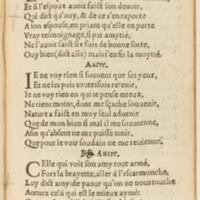 Et si l'espoux auoit faict son deuoir,
Qui dict qu'ouy, & de ce s'en raporte
A son espouse, en priant qu'elle en porte
Vray tesmoignage, si par amytié,
Ne l'auoit faict six fois de bonne sorte,
Ouy bien (dict elle) mais i'en fis la moytié.
Autre.
IE ne voy rien si souuent que ses yeux,
Et ne les puis toutesfois retenir.
Ie ne voy rien en qui ie pense mieux,
Ne rien moins, dont me sçache souuenir,
Nature a faict en moy seul aduenir
Que de mon bien si mal il me souuienne,
Afin qu'absent ne me puisse tenir,
Que pour le voir soudain ne me reuienne.
Autre.
CElle qui voit son amy tout armé,
Fors la brayette, aller à l'escarmouche,
Luy dict amy: de paour qu'on ne nous touche
Armez cela qui est le mieux aymé: